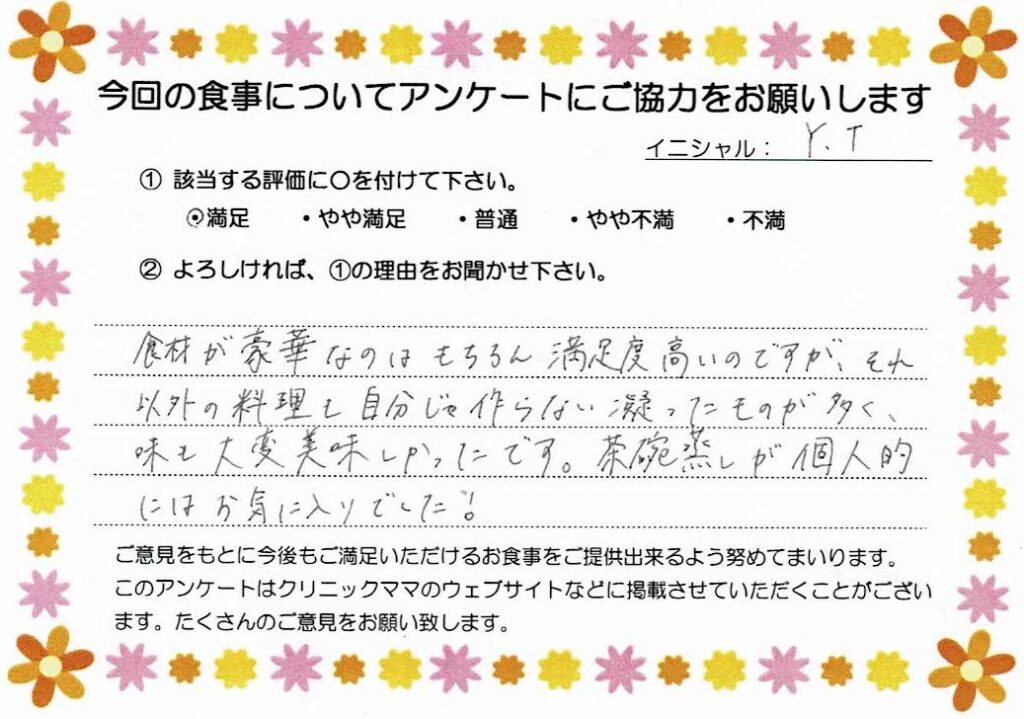 今回の食事についてアンケートにご協力をお願いします
イニシャル： Y.T
① 該当する評価に〇を付けて下さい。
・満足 ・やや満足 ・普通 ・やや不満 ・不満
② よろしければ、①の理由をお聞かせ下さい。
食材が豪華なのはもちろん満足度高いのですが、それ
以外の料理も自分じゃ作らない凝ったものが多く、
味も大変美味しかったです。茶碗蒸しが個人的
にはお気に入りでした！
ご意見をもとに今後もご満足いただけるお食事をご提供出来るよう努めてまいります。
このアンケートはクリニックママのウェブサイトなどに掲載させていただくことがござい
ます。たくさんのご意見をお願い致します。